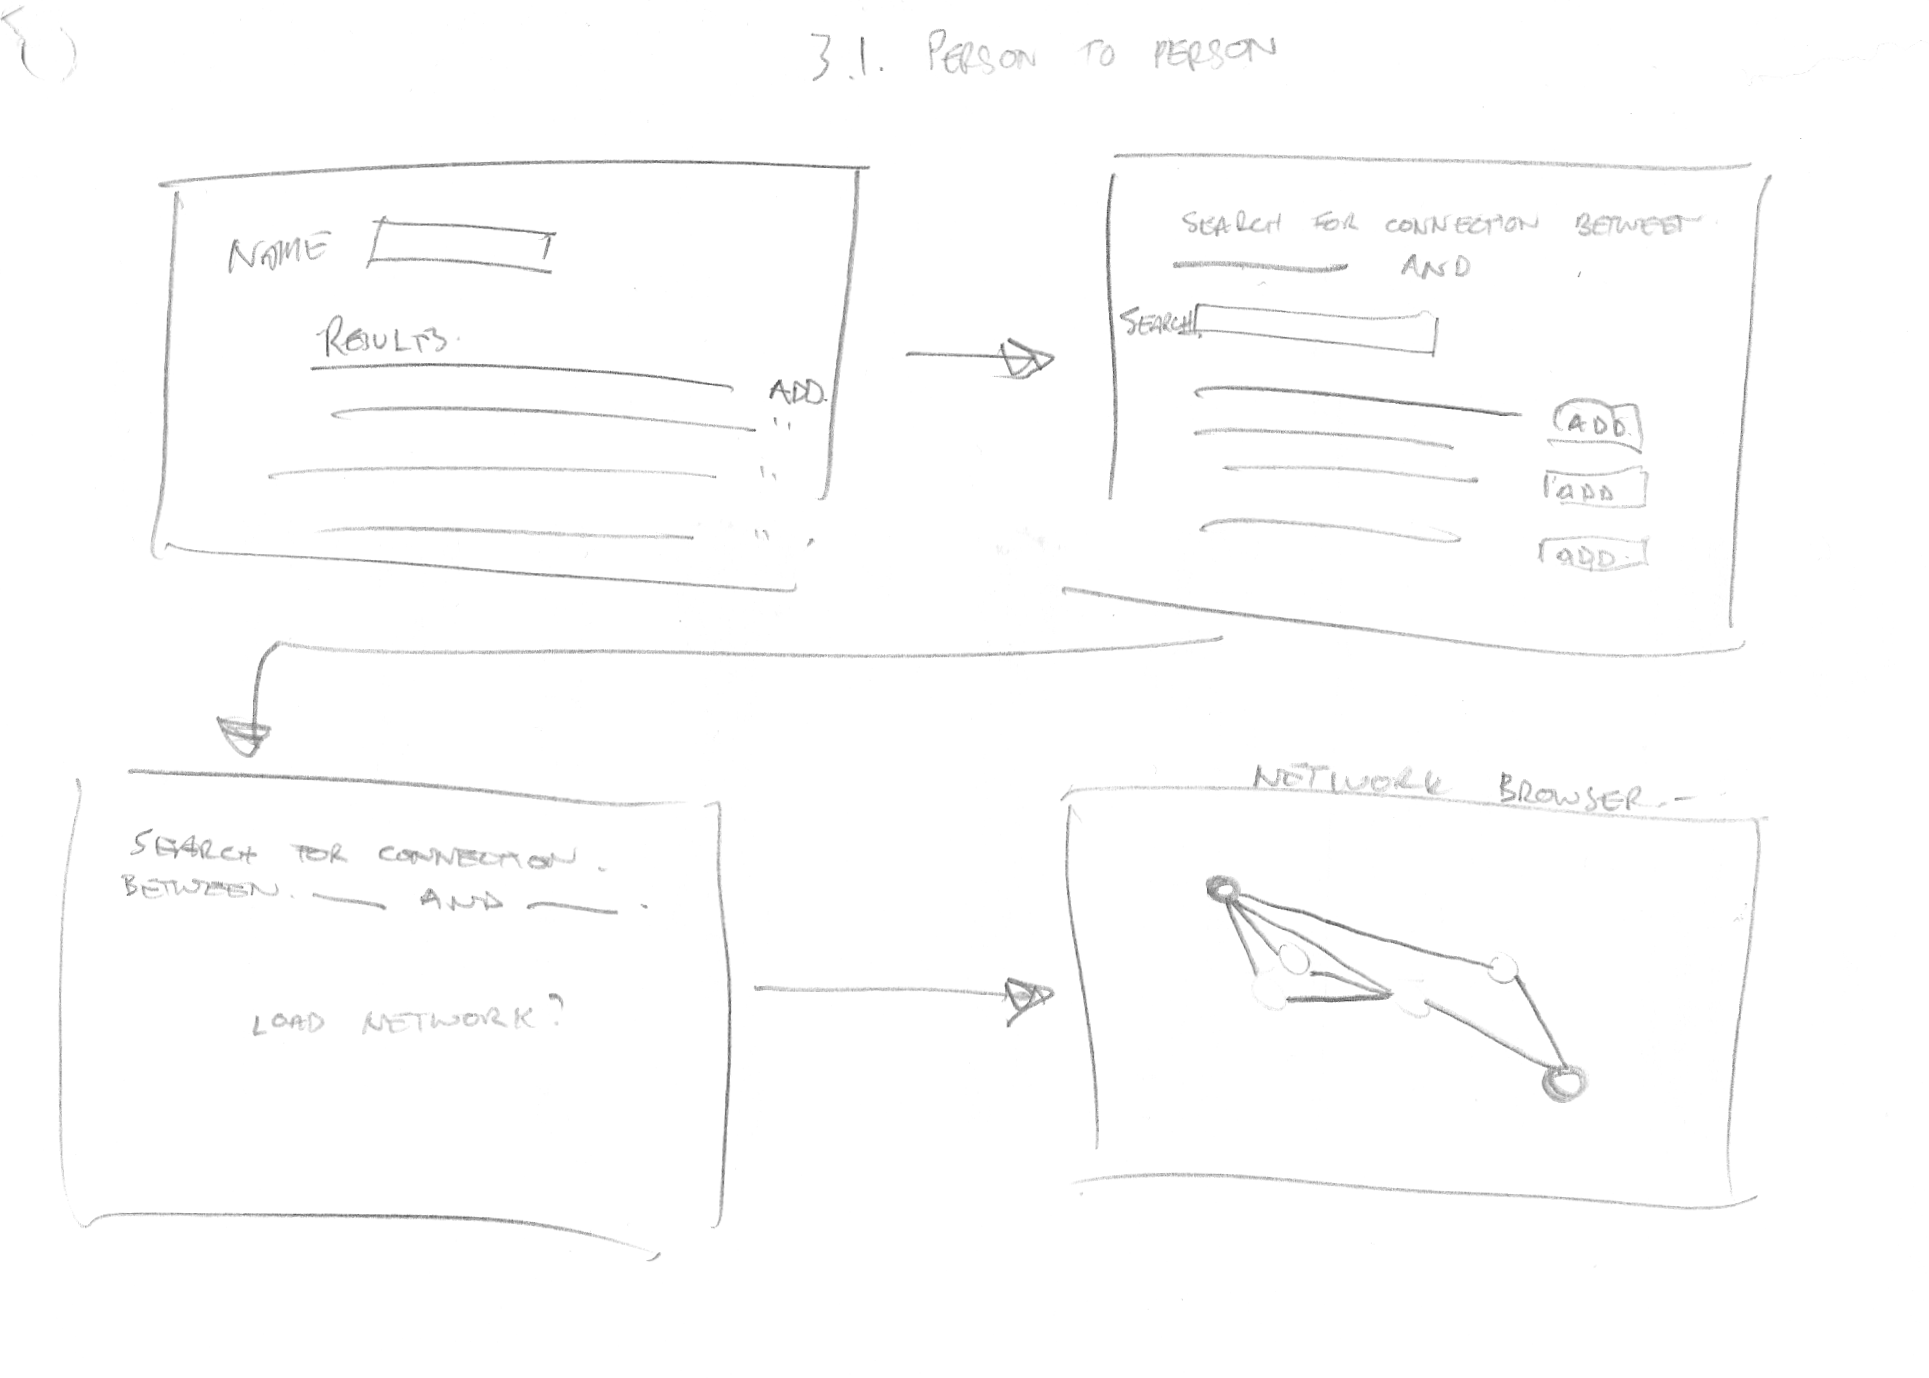 3.1. PERSON TO PERSON
NAME
RESULTS.
ADD.
"
"
"
SEARCH FOR CONNECTION BETWEET
AND
SEARCH
ADD.
ADD
ADD.
SEARCH FOR CONNECTION.
BETWEEN. — AND — .
LOAD NETWORK?
NETWORK BROWSER. –